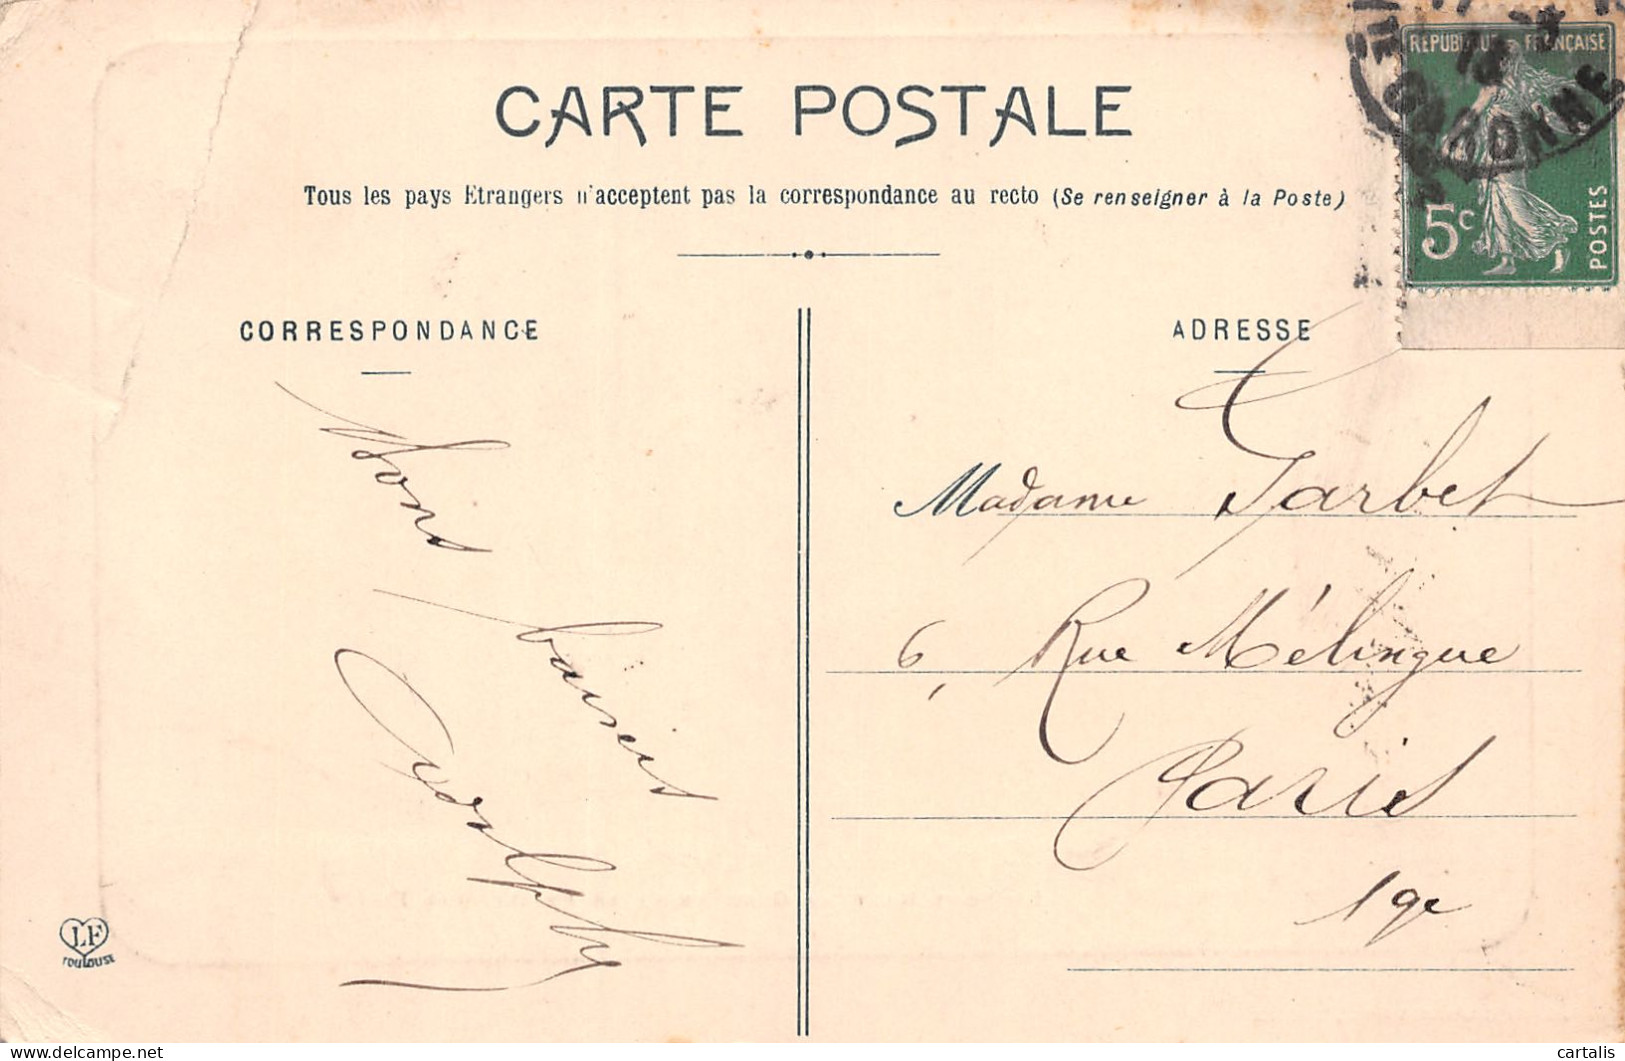 CARTE POSTALE
Tous les pays Etrangers n'acceptent pas la correspondance au recto (Se renseigner à la Poste)
CORRESPONDANCE
Bons baisers
Adolphe
ADRESSE
Madame Tarbet
6, Rue Mélingue
Paris
19e
REPUBLIQUE FRANÇAISE
5c
POSTES
LF
TOULOUSE
cartalis